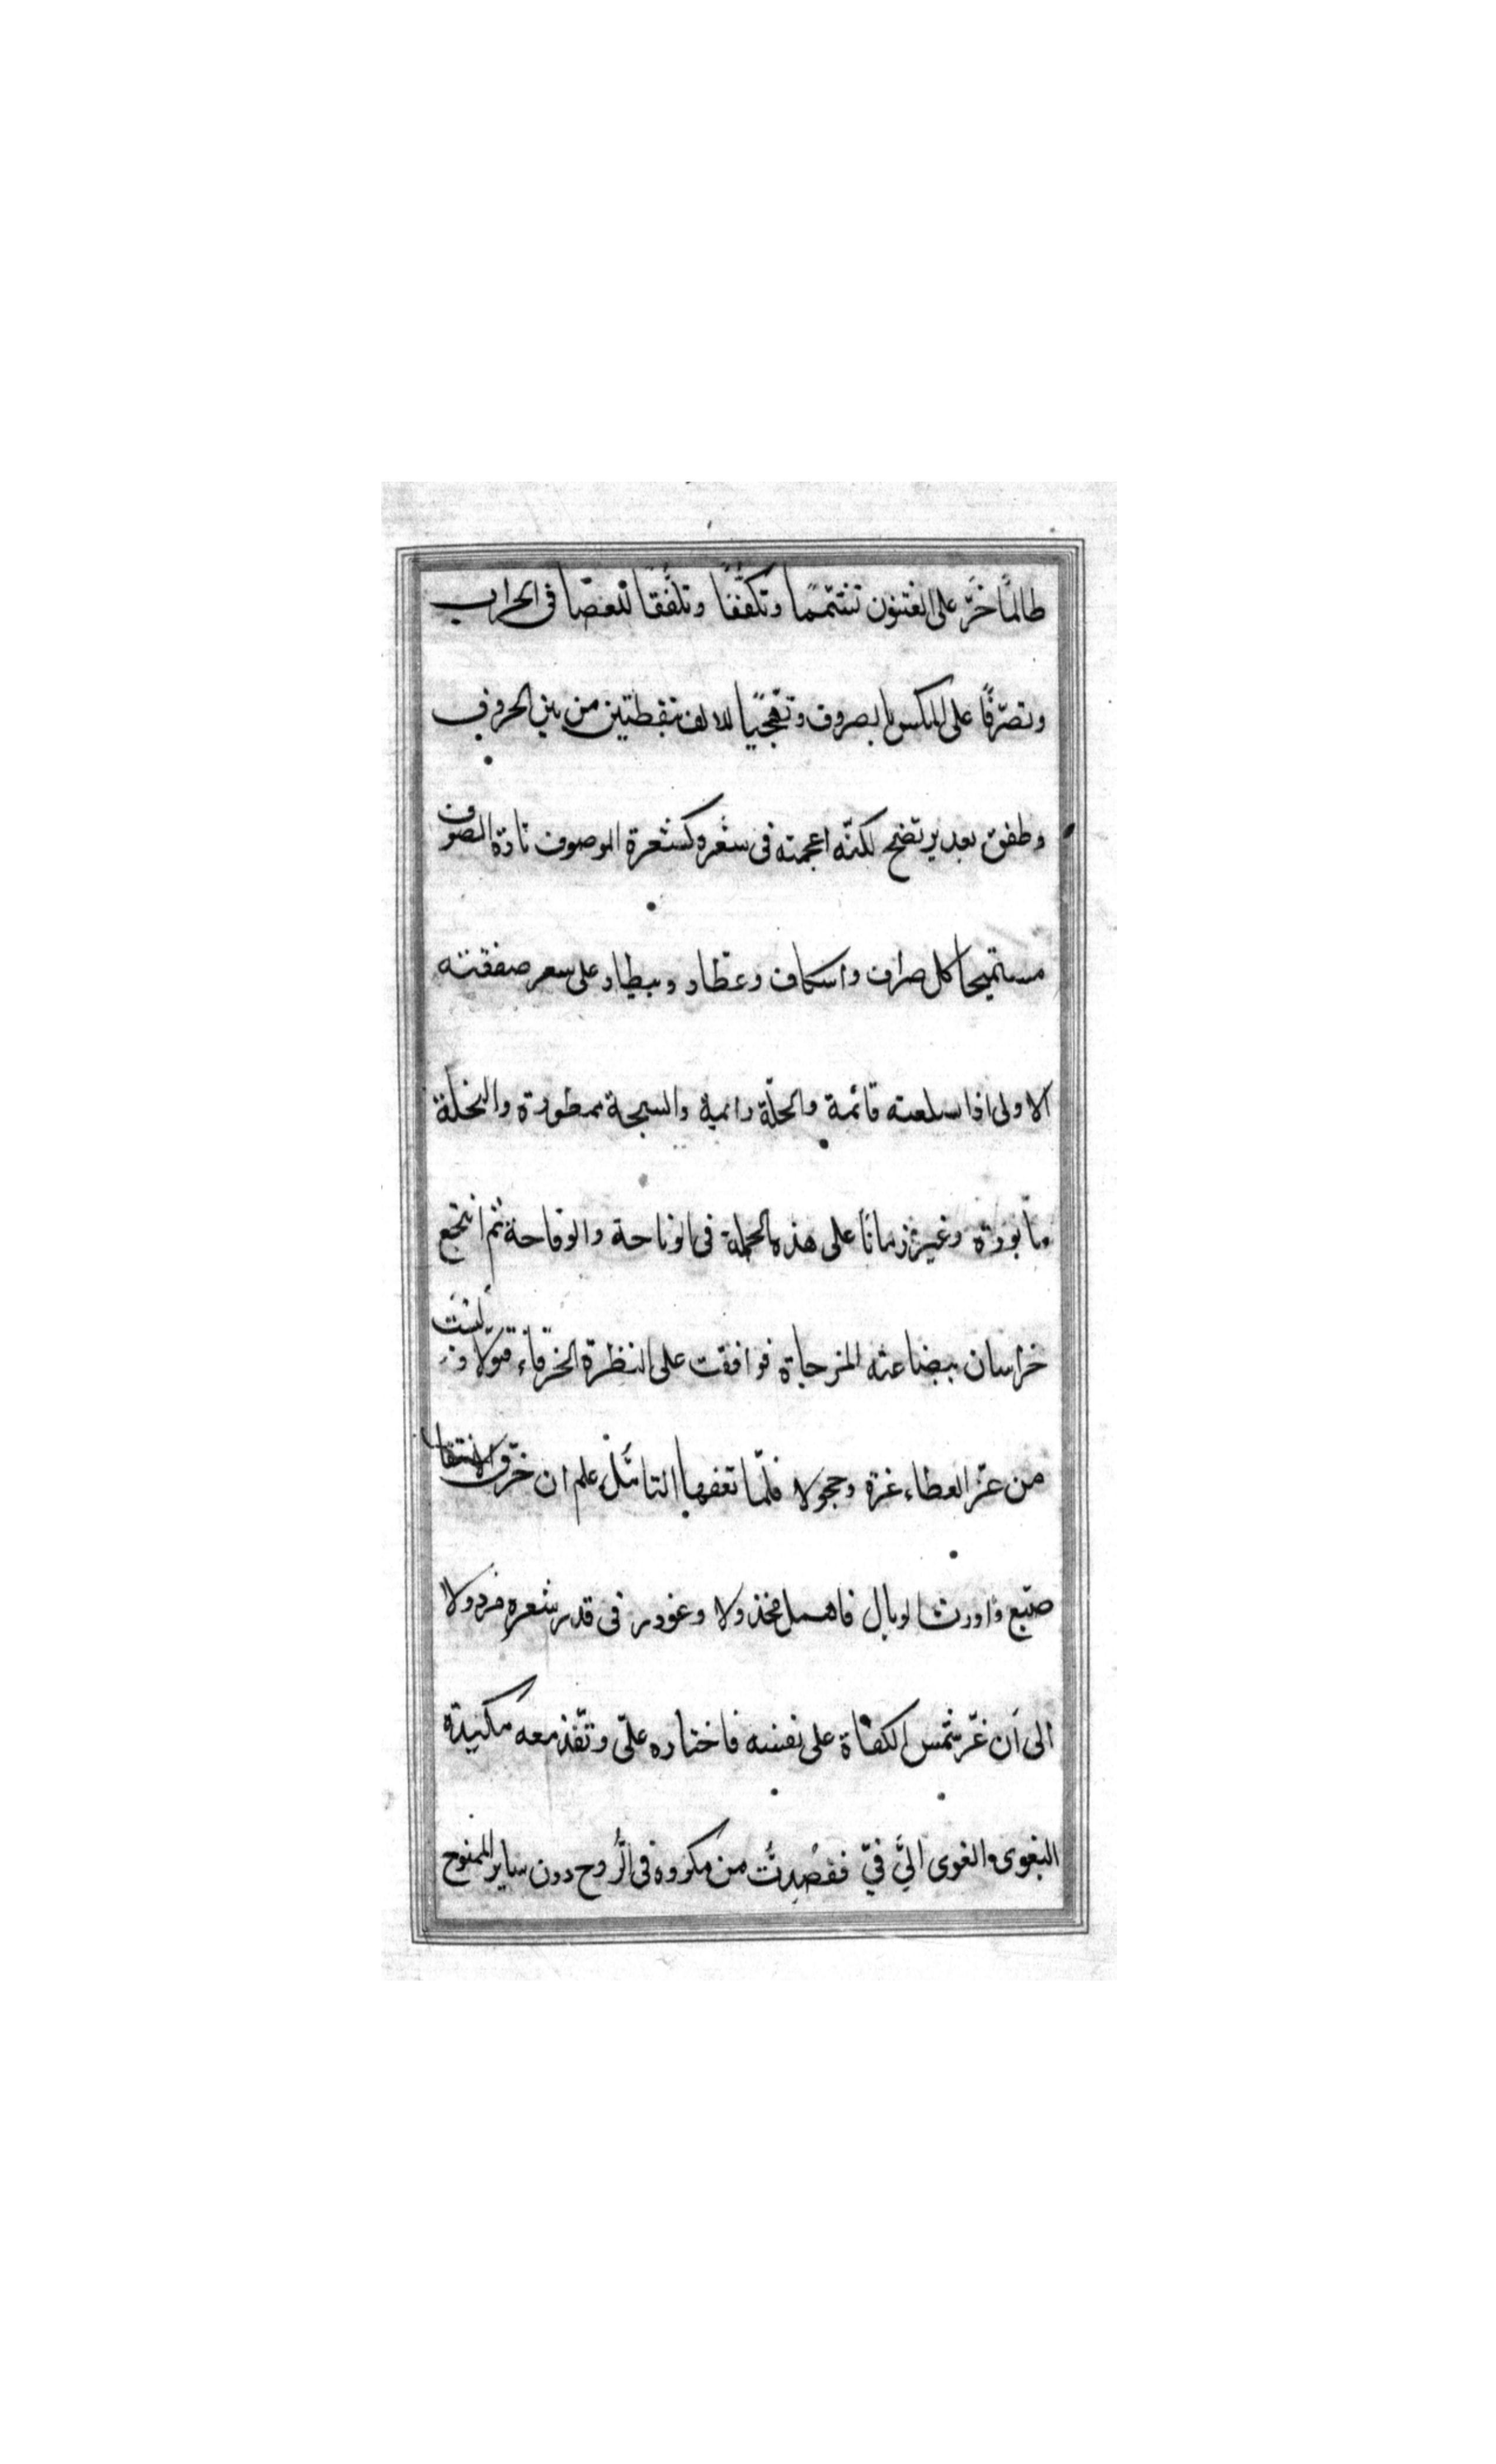 طالمًا خَرَّ على الفتون تنتمّمًا وتكفّفًا وتلفُّقًا للعصَا فى الجراب
وتصرّفًا على المكس بالصروف وتهجّيًا للالف بنقطتين من بين الحروف
وطفق بعد يرتضخ لكنّه اعجميته فى سعره كشعرة الموصوف تارة الصوف
مستميحا كل صراف واسكاف وعطار وبيطار على سعر صفقته
الاولى اذا سلعته قائمة والحلّة دائمية والسبحة ممطورة والنخلة
مأبورة وغبر زمانًا على هذه الجملة فى الوناحة والوقاحة ثم انتجع
خراسان ببضاعته المزجاة فوافقت على النظرة الخرقاء قبولا وزينت
من عزّ العطاء غرّة وحجولا فلمّا تعفيها التأمّل علم ان خرّق الانتقا
ضبع واورث الوبال فاهمل مخذولا وغودر فى قدر شعره مردولا
الى أن غرّ شمس الكفاة على نفسه فاختاره علىّ ونفّذ معه مكيدة
البغوى الغوى الىَّ فىّ فقُصِدتُ من مكروه فى الرُّوح دون ساير الممنوح